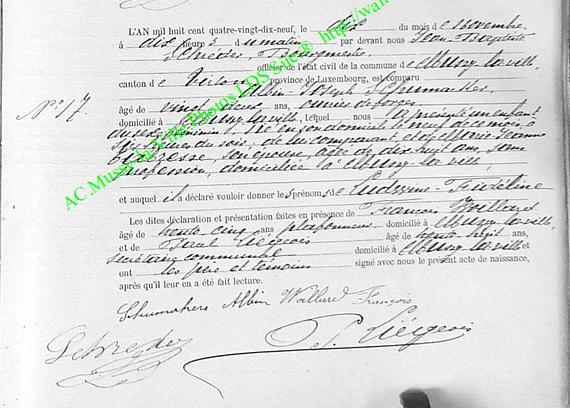 L'AN mil huit cent quatre-vingt-dix-neuf, le dix du mois de Novembre
à dix heures du matin par devant nous Jean Baptiste
Schréder, Bourgmestre
officier de l'état civil de la commune de Mussy-la-ville,
canton de Virton, province de Luxembourg, est comparu
Albin Joseph Schumacker,
N° 17
âgé de vingt ans, ouvrier de forges
domicilié à Mussy-la-ville, lequel nous a présenté un enfant
du sexe féminin, né en son domicile le neuf de ce mois à
heures du soir, de lui comparant et de Marie Jeanne
son épouse, âgée de dix huit ans, sans
profession, domiciliée à Mussy-la-ville,
et auquel il a déclaré vouloir donner les prénoms de Fidéline
Les dites déclaration et présentation faites en présence de François Woillard
âgé de trente cinq ans, plafonneur domicilié à Mussy-la-ville,
et de Liégeois âgé de trente huit ans,
secrétaire communal domicilié à Mussy-la-ville et
ont les père et témoins signé avec nous le présent acte de naissance,
après qu'il leur en a été fait lecture.
Schumackers Albin Woillard François
Schréder
Liégeois